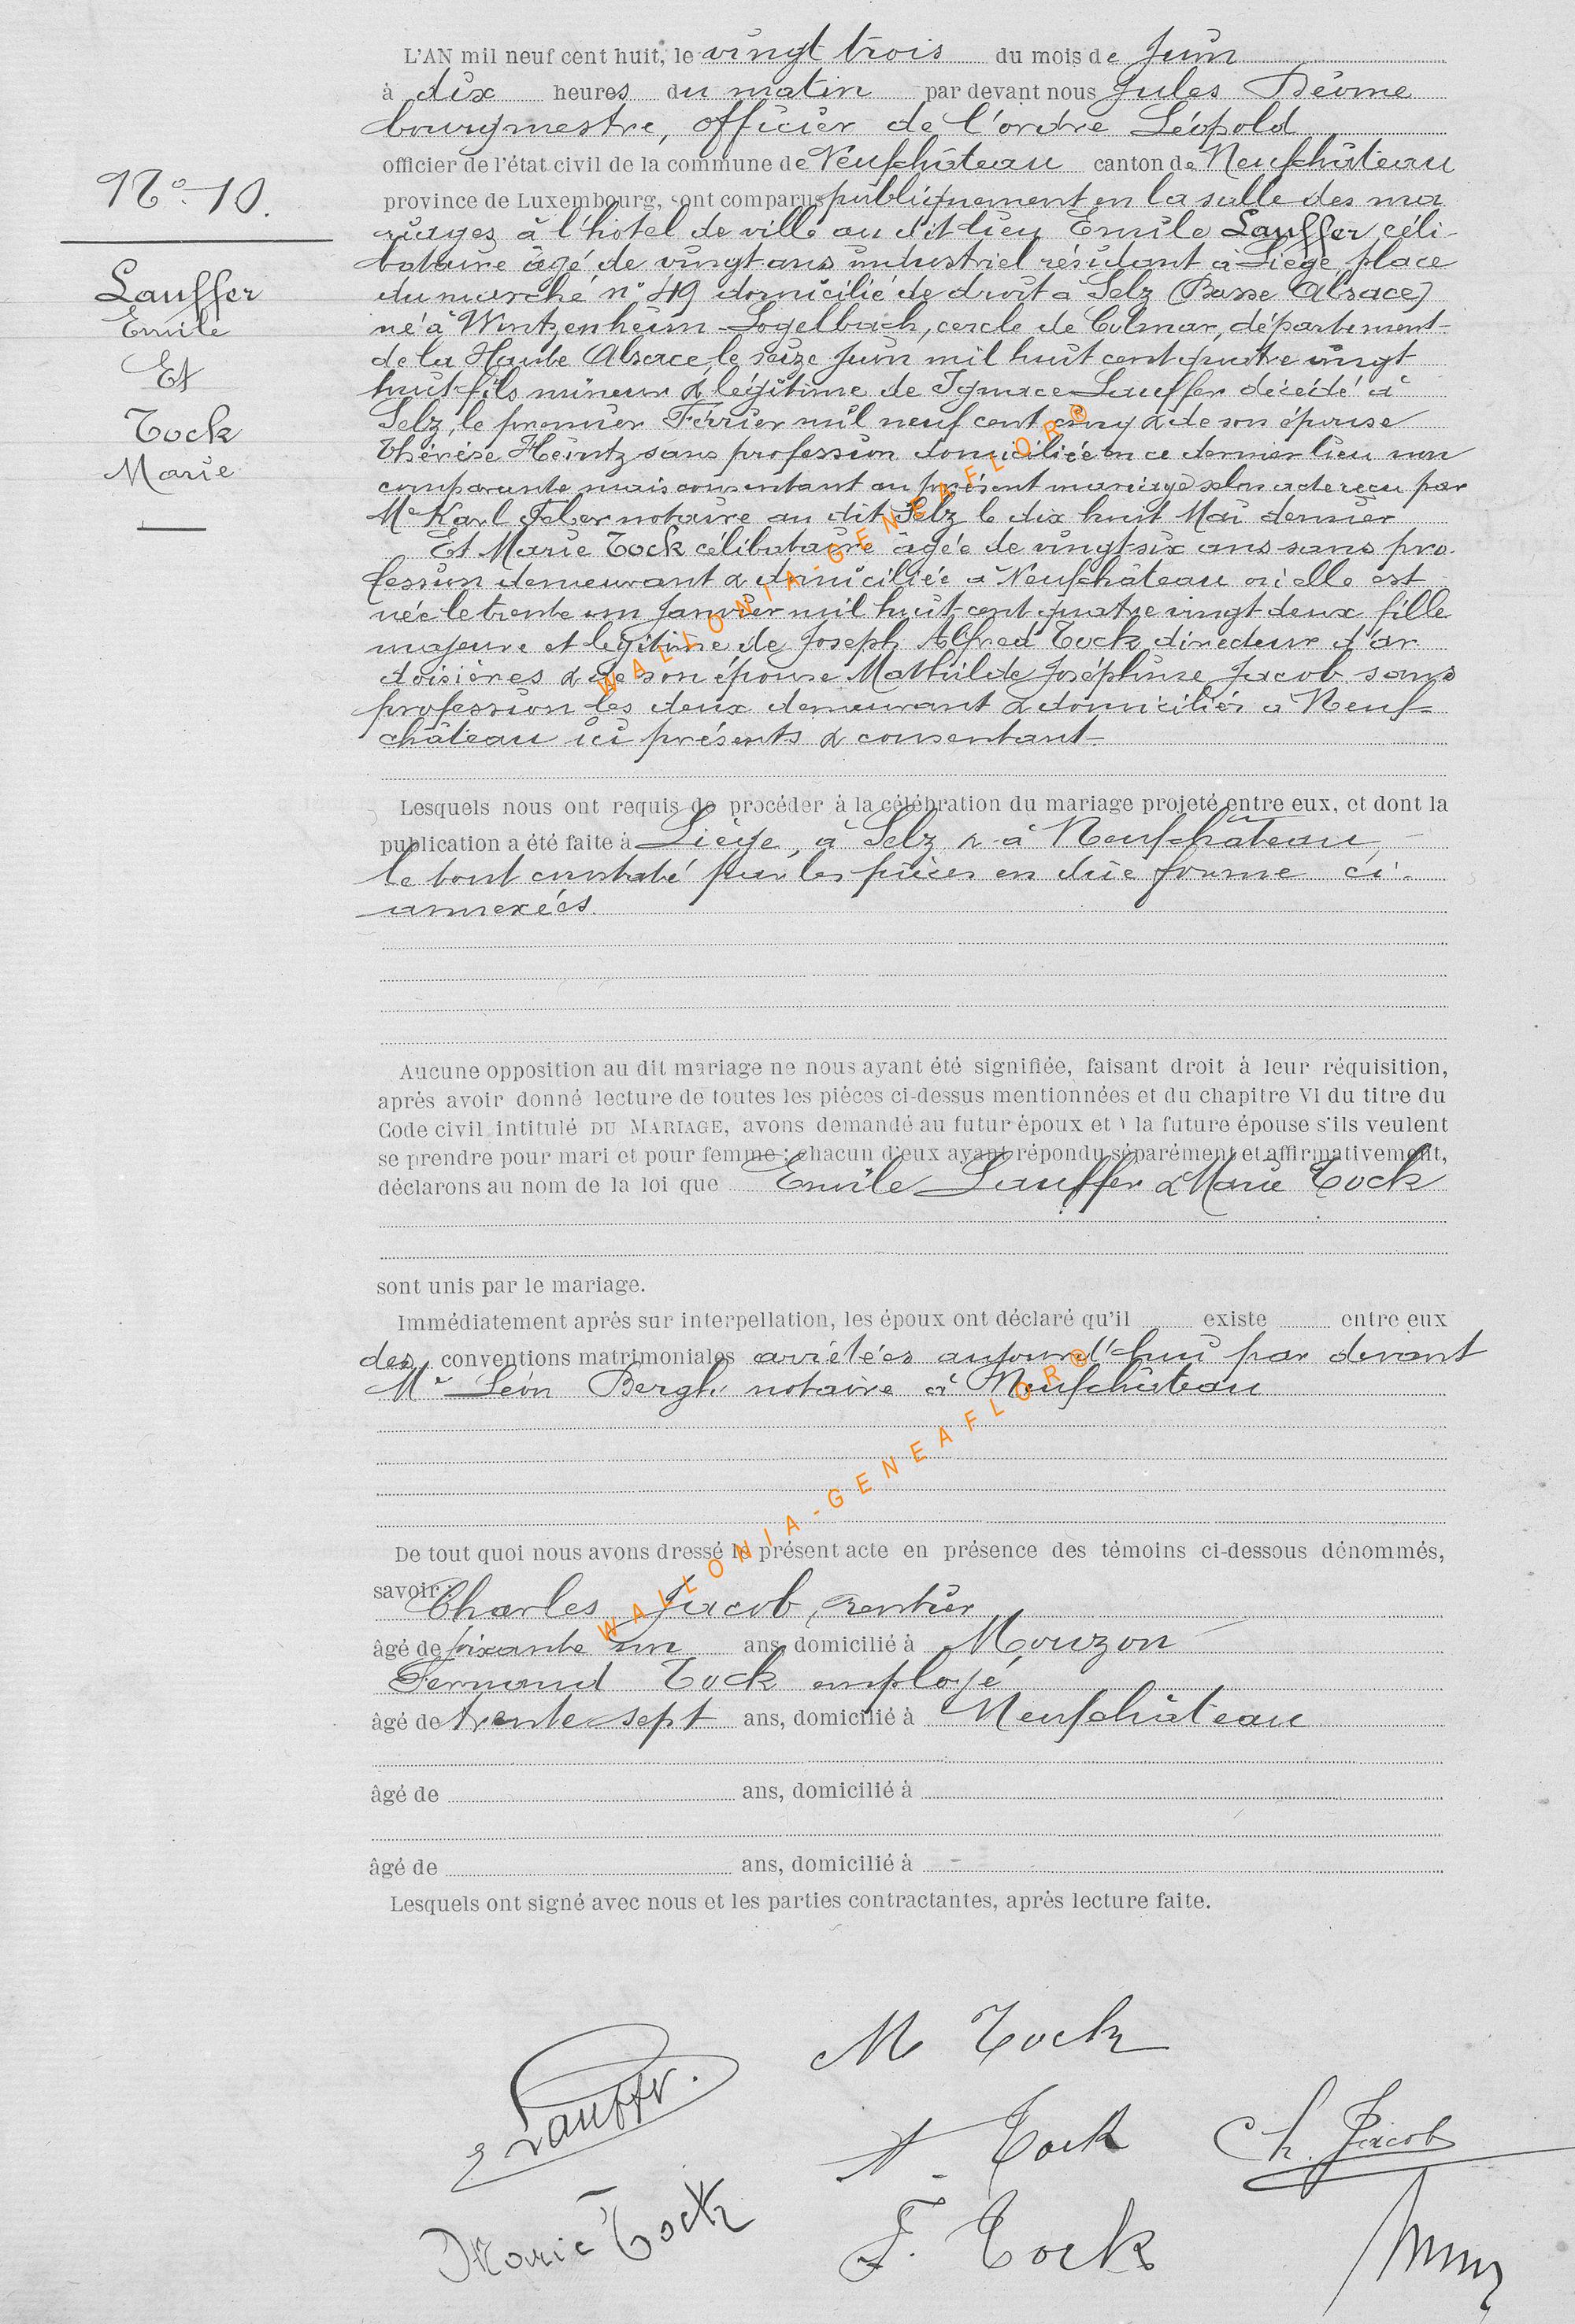 L'AN mil neuf cent huit, le vingt trois du mois de Juin
à dix heures du matin par devant nous Jules
bourgmestre, officier de l'ordre Léopold
officier de l'état civil de la commune de Neufchâteau canton de Neufchâteau
N° 10.
province de Luxembourg, sont comparus publiquement en la salle des ma
riages à l'hôtel de ville au dit lieu Emile Lauffer céli-
bataire âgé de vingt ans industriel résidant à Liège place
du marché n° 49 domicilié de droit à Selz (Basse Alsace)
né à Wintzenheim-Logelbach, cercle de Colmar, département
de la Haute Alsace, le seize Juin mil huit cent quatre vingt
huit fils mineur & légitime de Ignace Lauffer décédé à
Selz, le premier Février mil neuf cent cinq & de son épouse
Thérèse Heintz sans profession domiciliée en ce dernier lieu non
comparante mais consentant au présent mariage selon acte reçu par
Me Karl Feber notaire au dit Selz le dix huit Mai dernier
Et Marie Tock célibataire âgée de vingt six ans sans pro-
fession demeurant & domiciliée à Neufchâteau où elle est
née le trente un Janvier mil huit cent quatre vingt deux fille
majeure et légitime de Joseph Alfred Tock directeur d'ar
doisières & de son épouse Mathilde Joséphine Jacob sans
profession les deux demeurant & domiciliés à Neuf-
château ici présents & consentant
Lauffer
Emile
Et
Tock
Marie
Lesquels nous ont requis de procéder à la célébration du mariage projeté entre eux, et dont la
publication a été faite à Liège, à Selz & à Neufchâteau,
le tout constaté par les pièces en dûe forme ci-
annexées.
Aucune opposition au dit mariage ne nous ayant été signifiée, faisant droit à leur réquisition,
après avoir donné lecture de toutes les pièces ci-dessus mentionnées et du chapitre VI du titre du
Code civil intitulé DU MARIAGE, avons demandé au futur époux et à la future épouse s'ils veulent
se prendre pour mari et pour femme ; chacun d'eux ayant répondu séparément et affirmativement,
déclarons au nom de la loi que Emile Lauffer & Marie Tock
sont unis par le mariage.
Immédiatement après sur interpellation, les époux ont déclaré qu'il existe entre eux
des conventions matrimoniales arrêtées aujourd'hui par devant
Me Léon Bergh notaire à Neufchâteau
De tout quoi nous avons dressé le présent acte en présence des témoins ci-dessous dénommés,
savoir : Charles Jacob, rentier
âgé de soixante un ans, domicilié à Mouzon
Fernand Tock employé
âgé de trente-sept ans, domicilié à Neufchâteau
âgé de ans, domicilié à
âgé de ans, domicilié à
Lesquels ont signé avec nous et les parties contractantes, après lecture faite.
M Tock
E Lauffer.
A. Tock
Ch. Jacob
Marie Tock
F. Tock
WALLONIA-GENEAFLOR®
WALLONIA-GENEAFLOR®